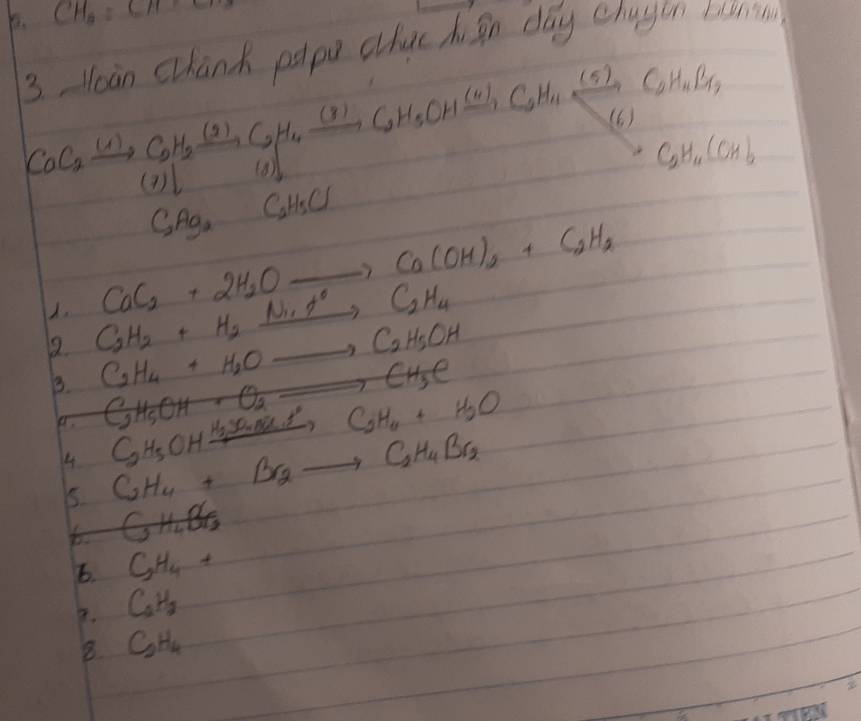 CH2 = CH - CH3
3. Hoàn thành ptpư thực hiện dãy chuyển
CaC2 (1)→ C2H2 (2)→ C2H4 (3)→ C2H5OH (4)→ C2H4 (5)→ C2H4Br2
(7)↓ (8)↓ (6)
C2Ag2 C2H5Cl C2H4(OH)2
1. CaC2 + 2H2O → Ca(OH)2 + C2H2
2. C2H2 + H2 Ni, t° → C2H4
3. C2H4 + H2O → C2H5OH
4. C2H5OH + O2 → CH3C
4. C2H5OH H2SO4 đặc, t° → C2H4 + H2O
5. C2H4 + Br2 → C2H4Br2
6. C2H4Br2
6. C2H4 +
7. C2H2
8. C2H4
TIEN